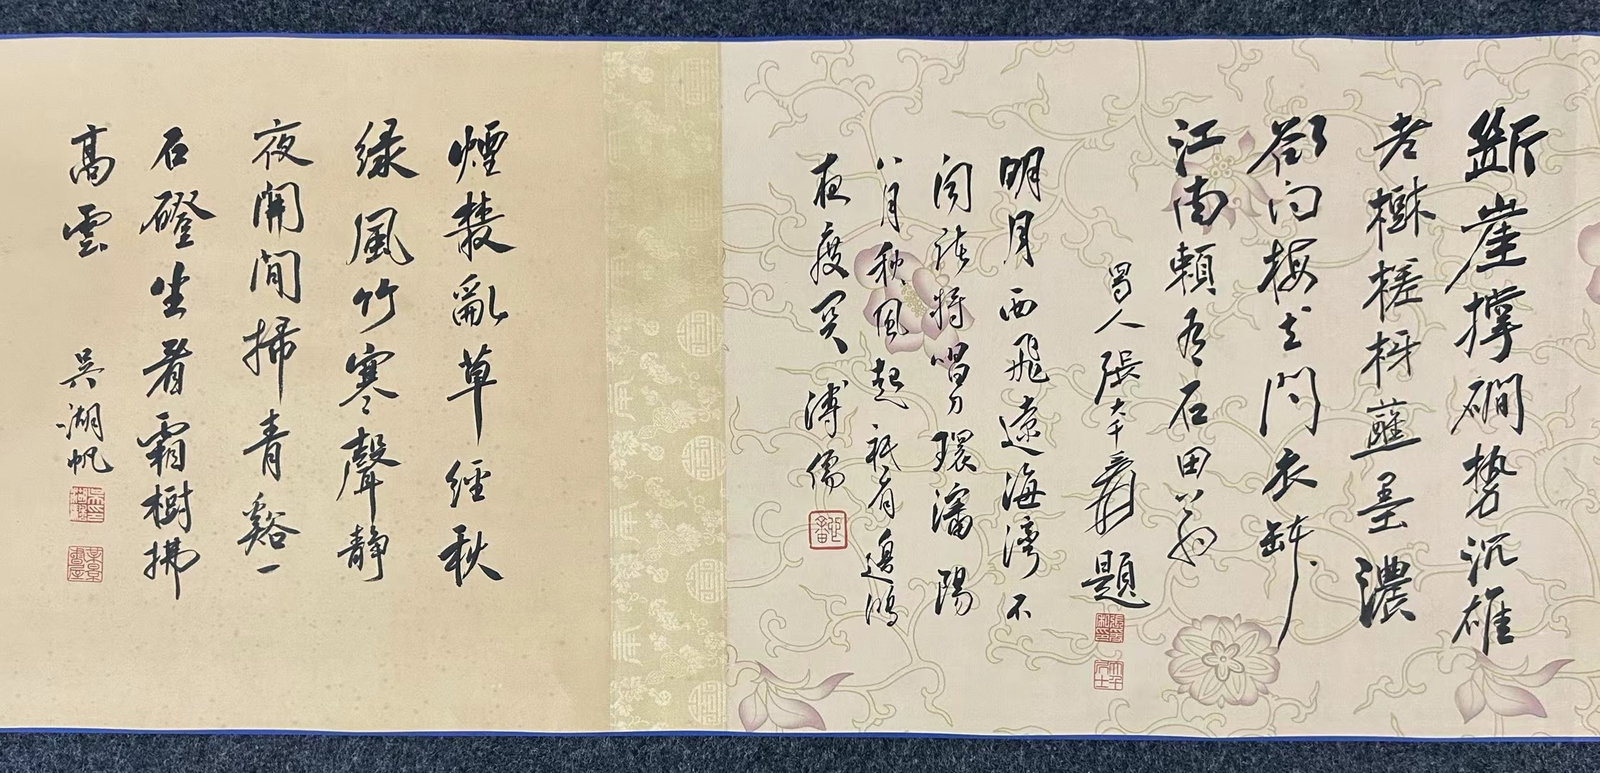 斷崖撐磵勢沉雄
老樹槎枒蘸墨濃
欲向梅
江南賴有石田翁
蜀人張大千爰題
明月西飛遠海灣不
聞詠將唱刀環瀋陽
八月秋風起祇有邊鴻
夜度關 溥儒
煙叢亂草經秋
綠風竹寒聲靜
夜開閒掃青谿一
石磴坐看霜樹拂
高雲 吳湖帆